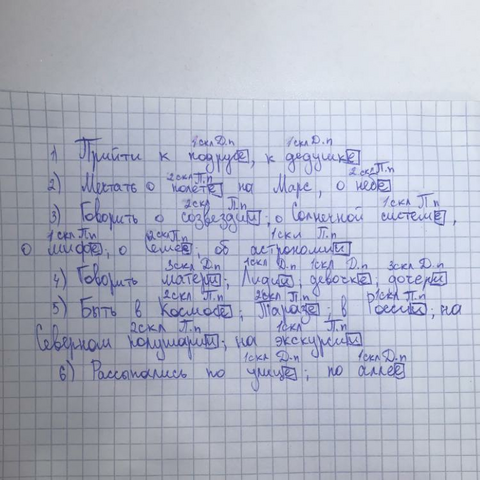 1скл Д.п 1скл Д.п
1) Прийти к подруге, к дедушке
2скл П.п 2скл П.п
2) Мечтать о полёте на Марс, о небе
2скл П.п 1скл П.п
3) Говорить о созвездии, о Солнечной системе,
1скл П.п 2скл П.п 1скл П.п
о мифе, о Семее; об астрономии
3скл Д.п 1скл Д.п 1скл Д.п 3скл Д.п
4) Говорить матери; Лидии; девочке; дочери
2скл П.п 2скл П.п 1скл П.п
5) Быть в Космосе; Таразе; в России; на
2скл П.п 1скл П.п
Северном полушарии; на экскурсии
1скл Д.п 1скл Д.п
6) Рассыпались по улице; по аллее